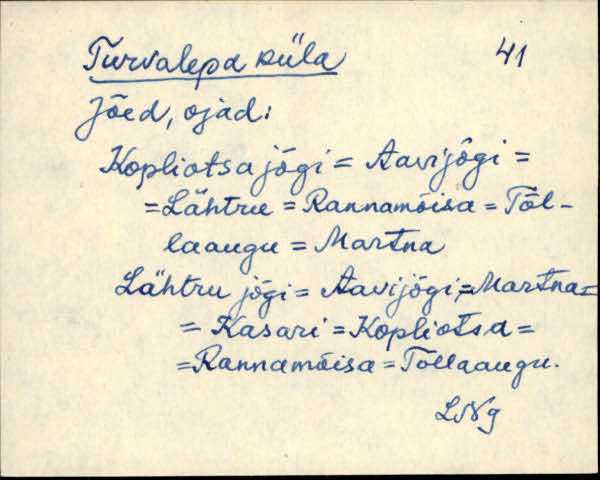 Turvalepa küla 41
Jõed, ojad:
Kopliotsa jõgi = Aavijõgi =
= Lähtru = Rannamõisa = Tõl-
laaugu = Martna
Lähtru jõgi = Aavijõgi = Martna =
= Kasari = Kopliotsa =
= Rannamõisa = Tollaaugu.
LNg